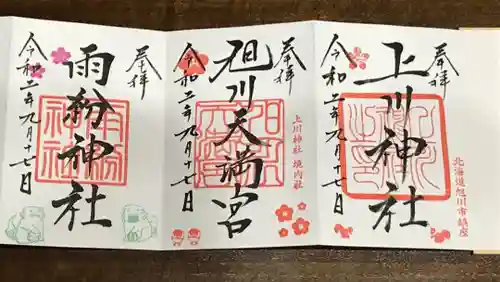 奉拝
上川神社
北海道旭川市鎮座
令和二年九月十七日
奉拝
旭川天満宮
上川神社 境内社
令和二年九月十七日
奉拝
雨紛神社
雨紛神社
令和二年九月十七日